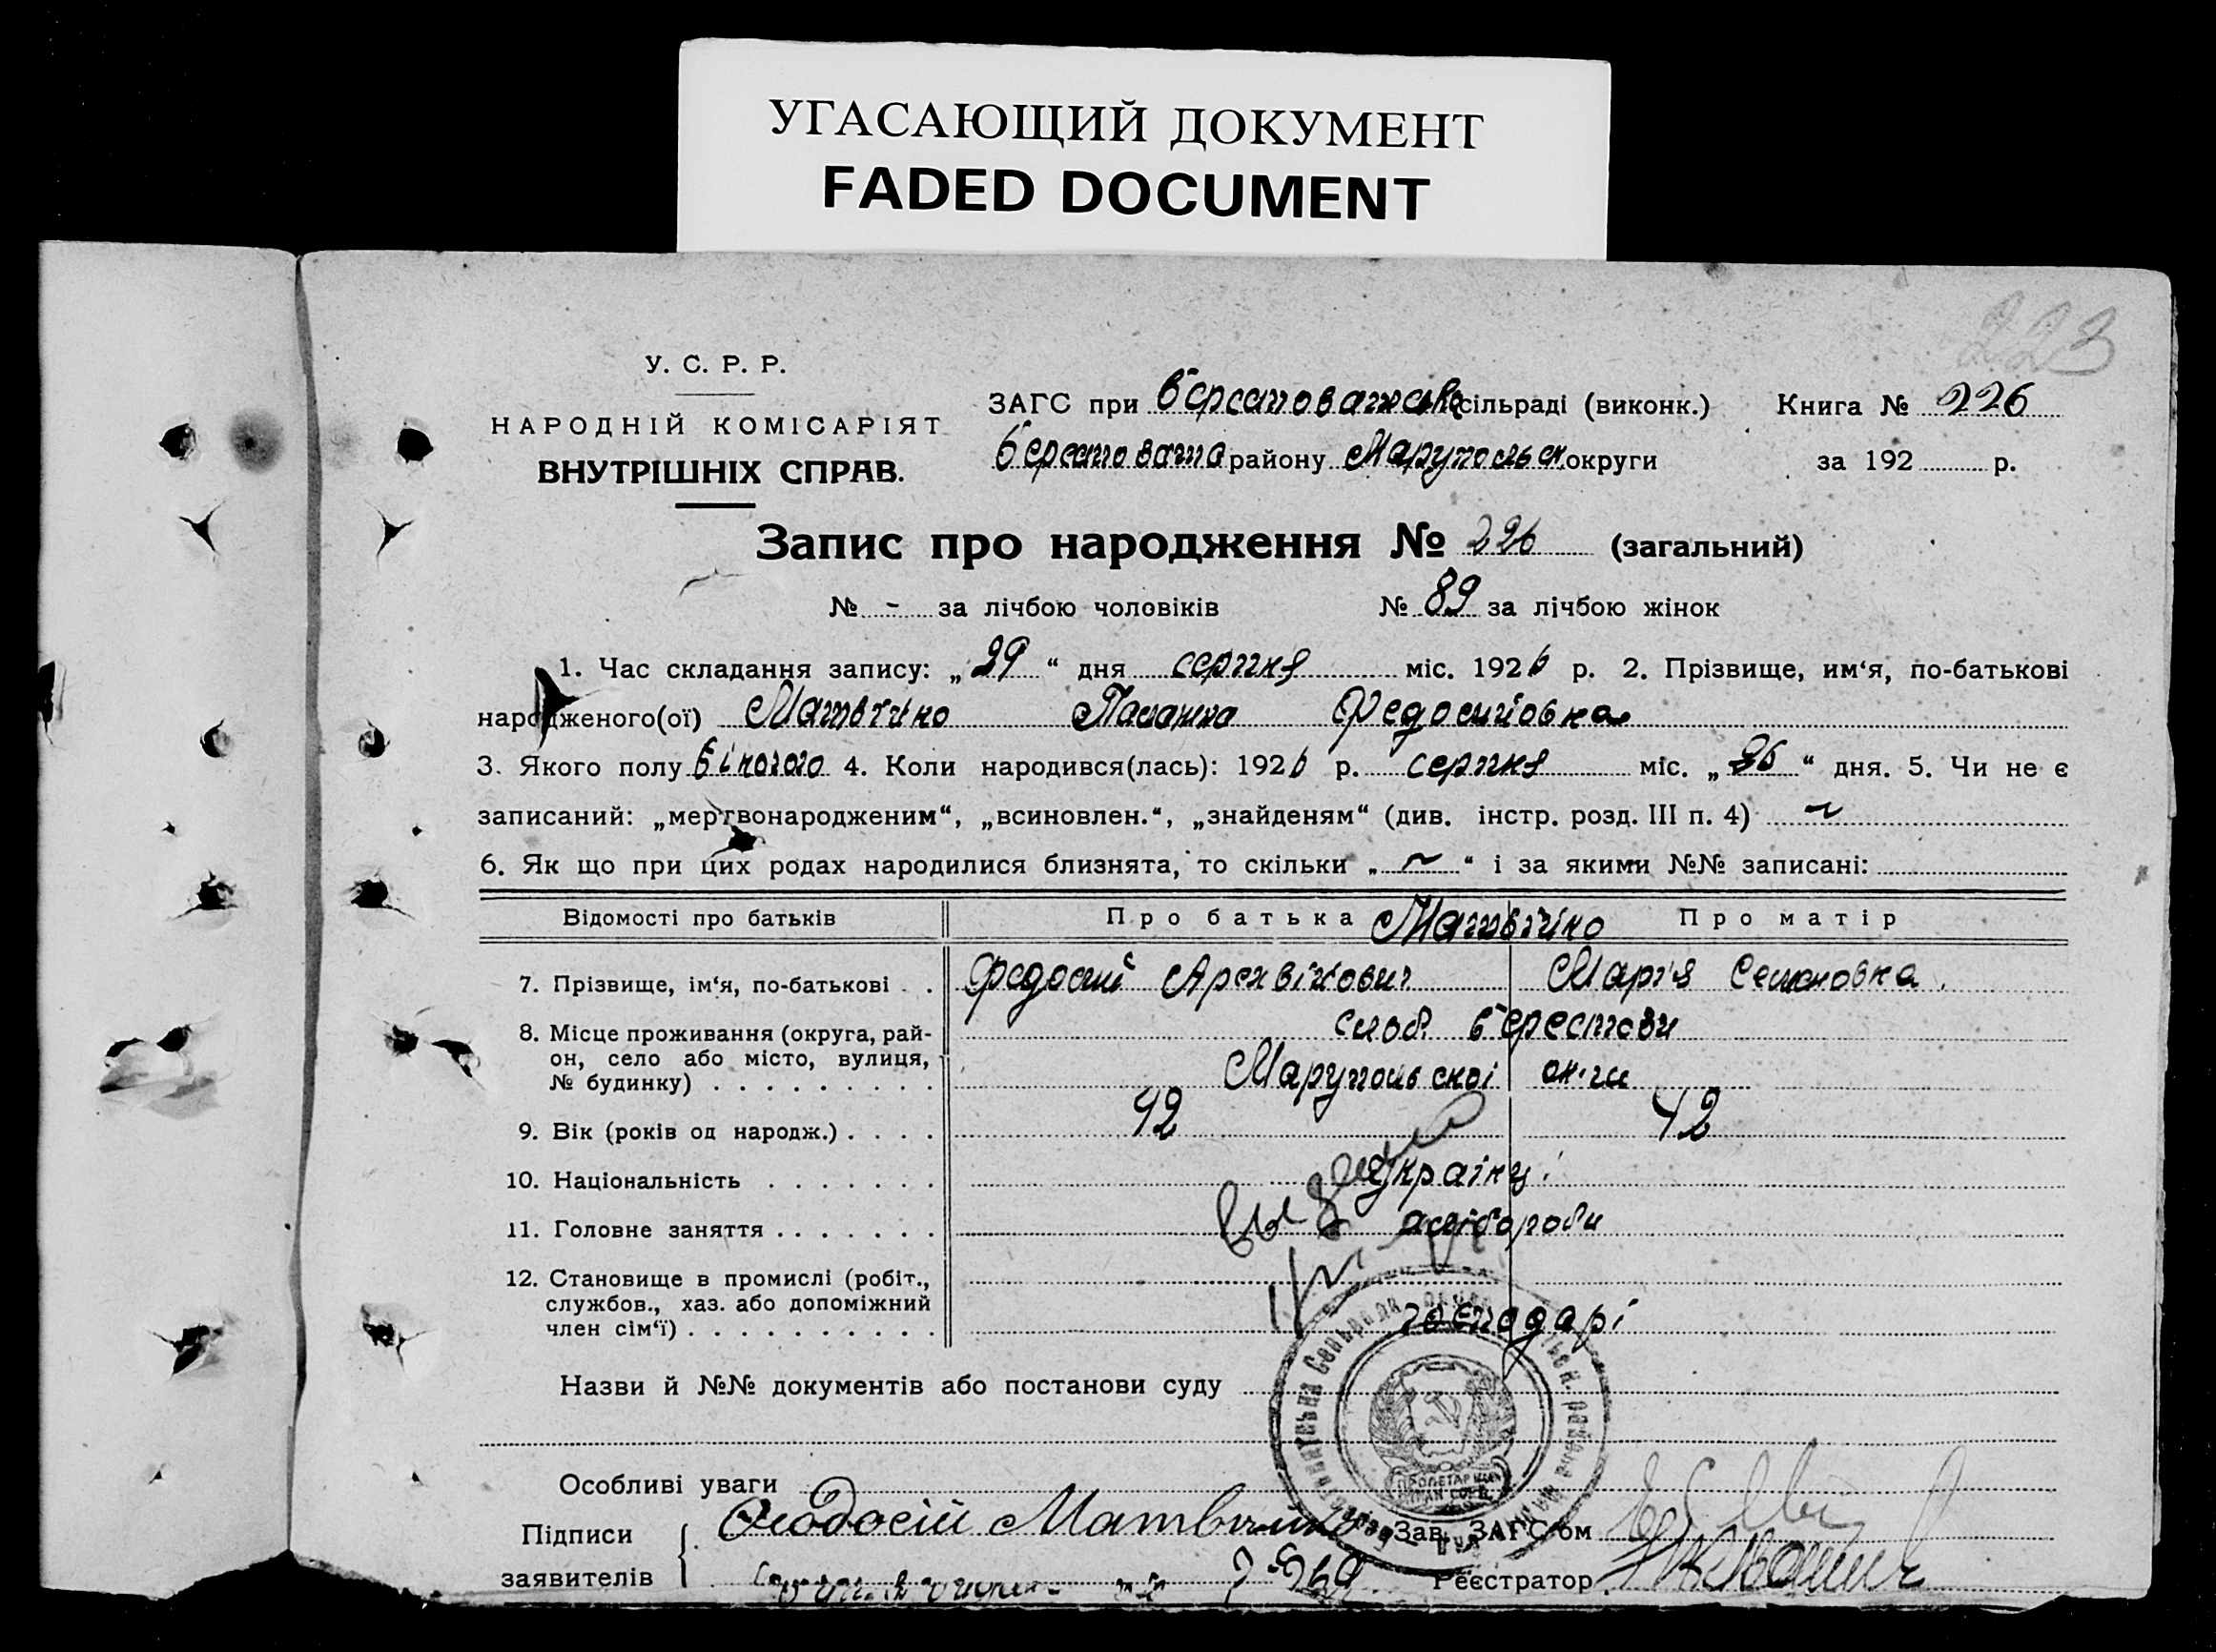 УГАСАЮЩИЙ ДОКУМЕНТ
FADED DOCUMENT
223
У. С. Р. Р.
НАРОДНІЙ КОМІСАРІЯТ
ВНУТРІШНІХ СПРАВ.
ЗАГС при сільраді (виконк.) Книга № 226
району округи за 192 р.
Запис про народження № 226 (загальний)
№ - за лічбою чоловіків № 89 за лічбою жінок
1. Час складання запису: „29“ дня серпня міс. 1926 р. 2. Прізвище, им‘я, по-батькові
народженого(ої) Матвіійко Палашка Федосиіовна
3. Якого полу жіночого 4. Коли народився(лась): 1926 р. серпня міс. „26“ дня. 5. Чи не є
записаний: „мертвонародженим“, „всиновлен.“, „знайденям“ (див. інстр. розд. III п. 4) ~
6. Як що при цих родах народилися близнята, то скільки „~“ і за якими №№ записані:
Відомості про батьків Про батька Про матір
7. Прізвище, ім‘я, по-батькові Федосий Марія Семеновна
8. Місце проживання (округа, рай-
он, село або місто, вулиця,
№ будинку)
слоб. Берестови
Марупольскоі ок-ги
9. Вік (років од народж.) 42 42
10. Національність Украінці
11. Головне заняття хлібороби
12. Становище в промислі (робіт.,
службов., хаз. або допоміжний
член сім‘ї)
господарі
Назви й №№ документів або постанови суду
Особливі уваги
Підписи
заявителів
Феодосій
Зав. ЗАГС‘ом
Реєстратор